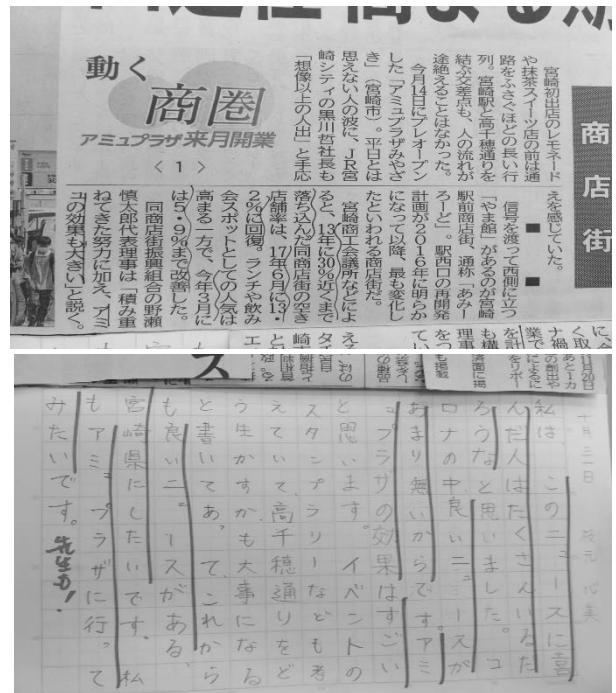 動く
商圏
アミュプラザ来月開業
〈1〉
商店街
宮崎初出店のレモネード
や抹茶スイーツ店の前は通
路をふさぐほどの長い行
列。宮崎駅と高千穂通りを
結ぶ交差点も、人の流れが
途絶えることはなかった。
今月14日にプレオープン
した「アミュプラザみやざ
き」（宮崎市）。平日とは
思えない人の波に、JR宮
崎シティの黒川哲社長も
「想像以上の人出」と手応
えを感じていた。
■ ■
信号を渡って西側に立つ
「やま館」があるのが宮崎
駅前商店街、通称「あみー
ろーど」。駅西口の再開発
計画が2016年に明らか
になって以降、最も変化し
たといわれる商店街だ。
宮崎商工会議所などによ
ると、13年に30%近くまで
落ち込んだ同商店街の空き
店舗率は、17年6月に13・
2%に回復。ランチや飲み
会スポットとしての人気は
高まる一方で、今年3月に
は5・9%まで改善した。
同商店街振興組合の野瀬
慎太郎代表理事は「積み重
ねてきた努力に加え、アミ
ュの効果も大きい」と説く。
十月三一日
私は、このニュースに喜
んだ人はたくさんいるだ
ろうなと思いました。コ
ロナの中良いニュースが
あまり無いからです。アミ
ュプラザの効果はすごい
と思います。イベントの
スタンプラリーなども考
えていて、高千穂通りをど
う生かすかも大事になる
と書いてあって、これから
も良いニュースがある、
宮崎県にしたいです。私
もアミュプラザに行って
みたいです。
先生も！